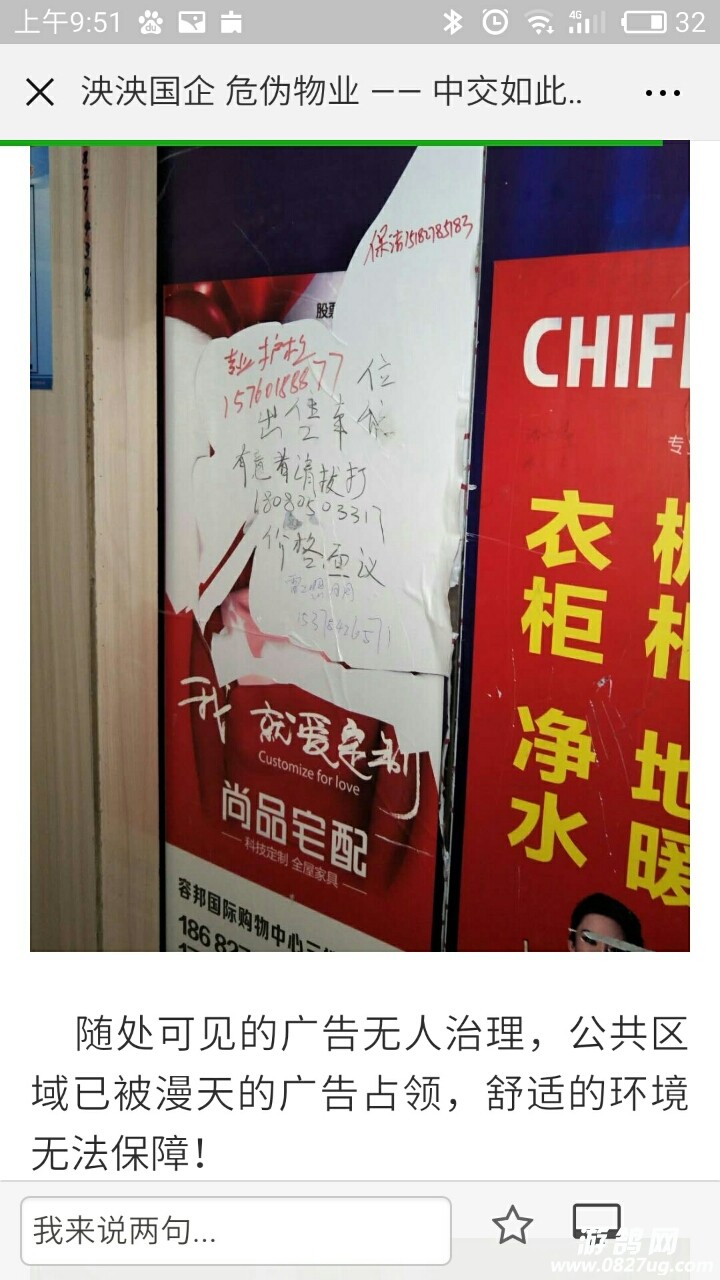 上午9:51
4G
32
泱泱国企 危伪物业 —— 中交如此..
保洁15182785183
股票
专业护栏
15760188877
出售车位
有意者请拨打
18080503317
价格面议
我就爱定制
Customize for love
尚品宅配
科技定制 全屋家具
容邦国际购物中心三
186 827
CHIF
专
衣柜
净水
地暖
随处可见的广告无人治理，公共区
域已被漫天的广告占领，舒适的环境
无法保障！
我来说两句...
游鸽网
www.0827ug.com